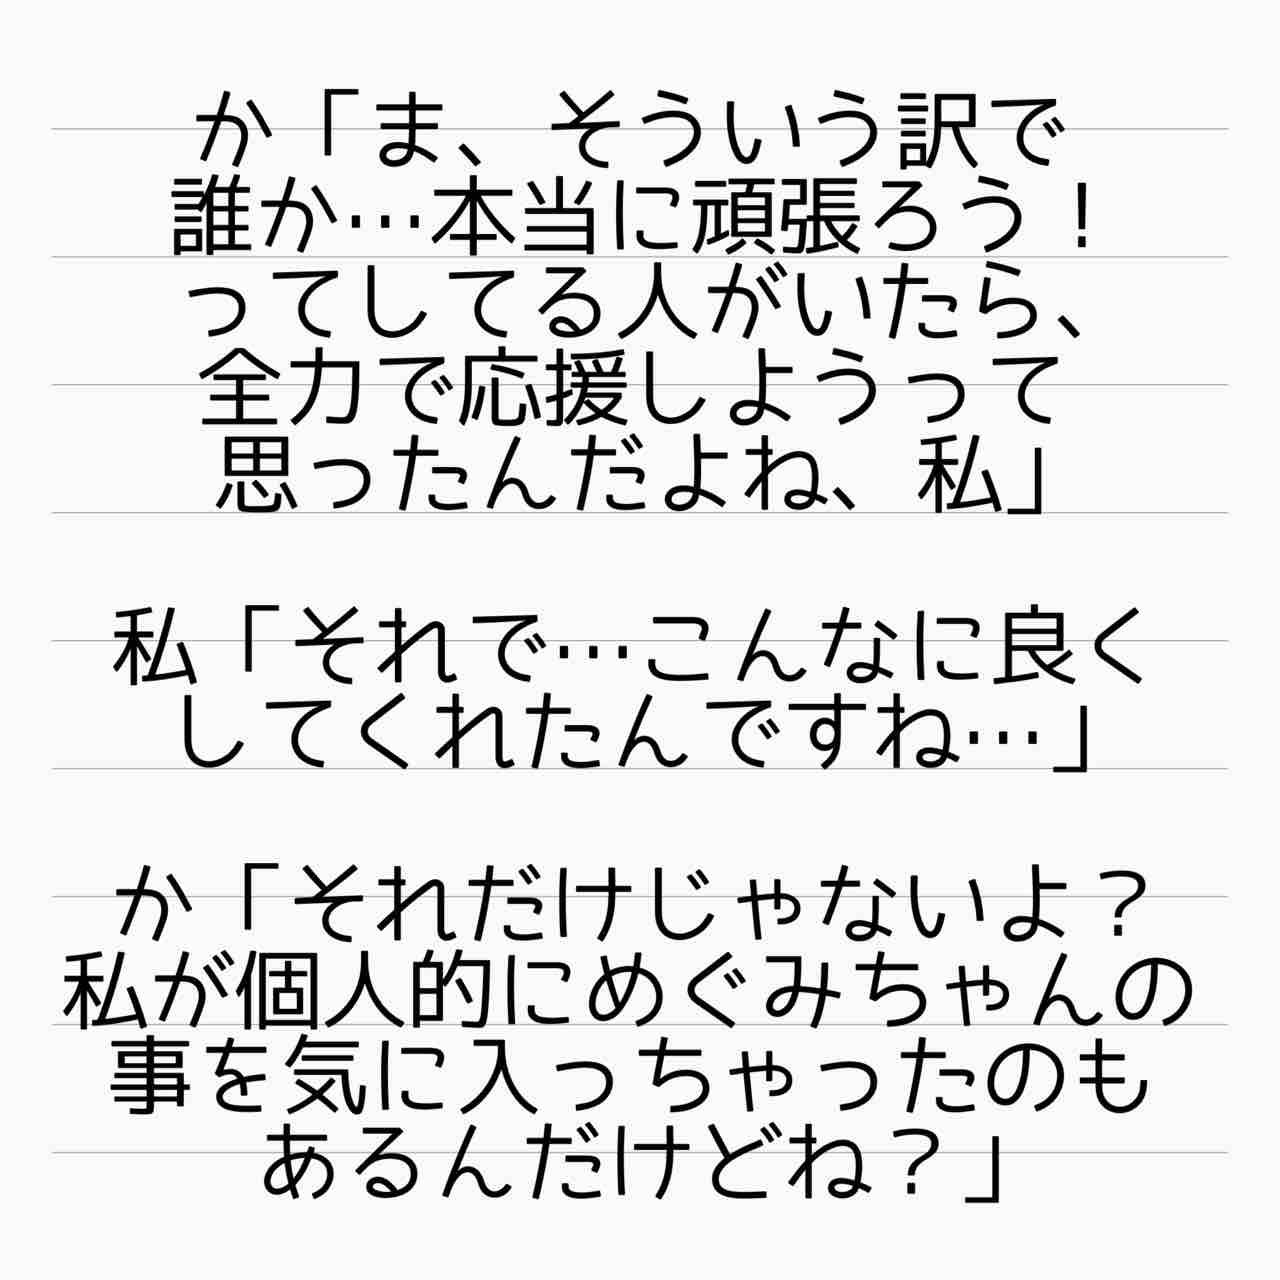 か「ま、そういう訳で
誰か…本当に頑張ろう！
ってしてる人がいたら、
全力で応援しようって
思ったんだよね、私」
私「それで…こんなに良く
してくれたんですね…」
か「それだけじゃないよ？
私が個人的にめぐみちゃんの
事を気に入っちゃったのも
あるんだけどね？」